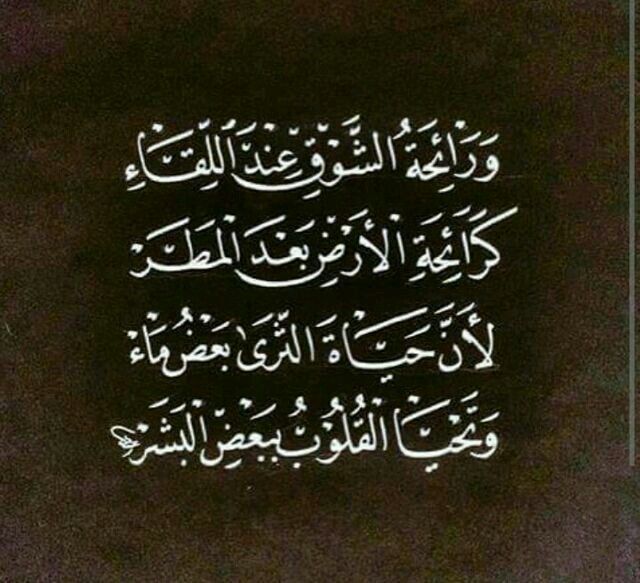 وَرَائِحَةُ الشَّوْقِ عِنْدَ اللِّقَاءِ
كَرَائِحَةِ الْأَرْضِ بَعْدَ الْمَطَرْ
لِأَنَّ حَيَاةَ الثَّرَىٰ بَعْضُ مَاءْ
وَتَحْيَا الْقُلُوبُ بِبَعْضِ الْبَشَرْ